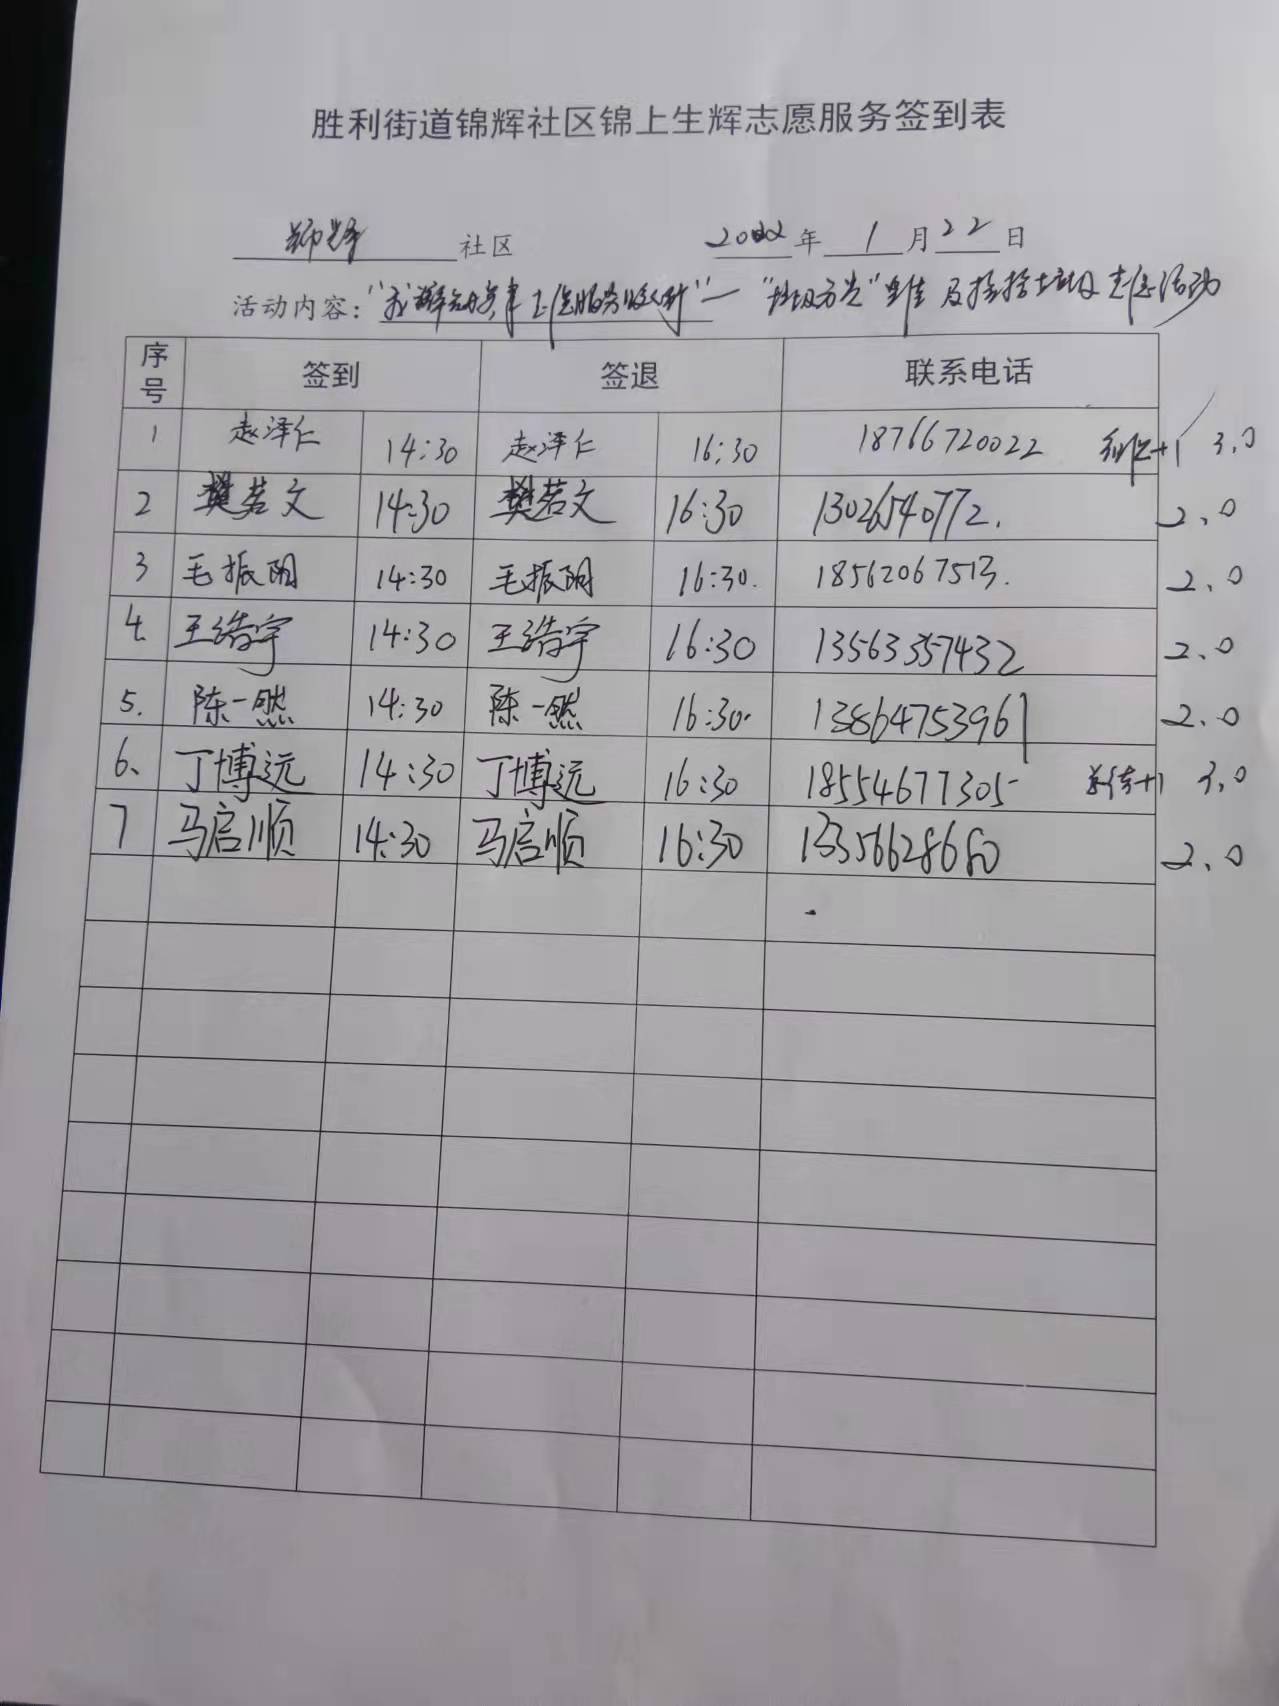 胜利街道锦辉社区锦上生辉志愿服务签到表
锦辉 社区 2022 年 1 月 22 日
活动内容： 志愿服务 "垃圾分类" 及捡拾垃圾志愿活动
序号 签到 签退 联系电话
1 赵泽仁 14:30 赵泽仁 16:30 18766720022 +1 3.0
2 樊若文 14:30 樊若文 16:30 13026540772. 2.0
3 毛振阳 14:30 毛振阳 16:30. 18562067513. 2.0
4. 王浩宇 14:30 王浩宇 16:30 13563357432 2.0
5. 陈一然 14:30 陈一然 16:30. 13864753961 2.0
6、 丁博远 14:30 丁博远 16:30 18554677305 +1 3.0
7 马启顺 14:30 马启顺 16:30 13356628680 2.0